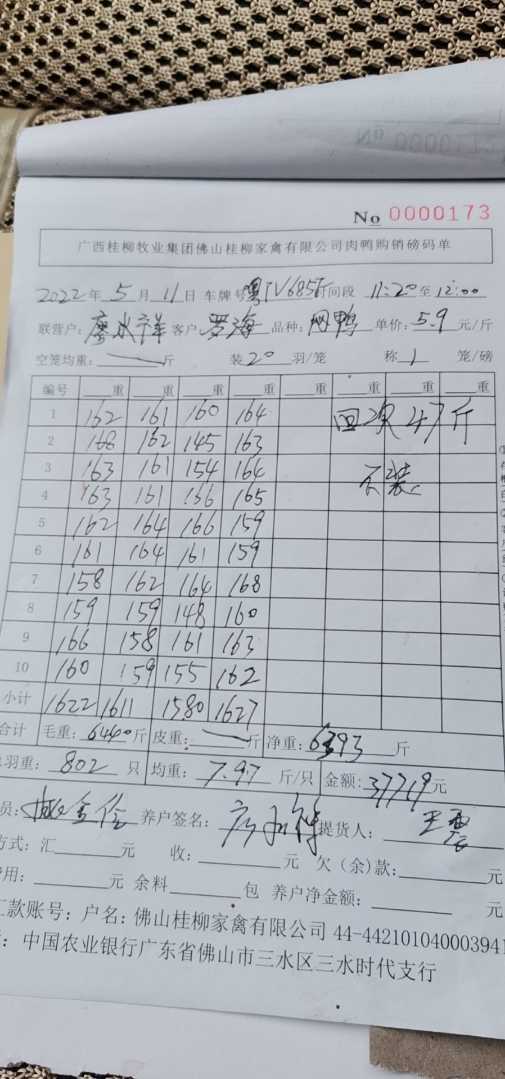 No 0000173
广西桂柳牧业集团佛山桂柳家禽有限公司肉鸭购销磅码单
2022年 5月 11日 车牌号 粤 时间段 11:20至12:00
联营户: 客户: 罗海 品种: 单价: 5.9 元/斤
空笼均重: 斤 装 20 羽/笼 称 1 笼/磅
编号 重 重 重 重 重 重 重 重
1 162 161 160 164 47斤
2 168 162 145 163
3 163 161 154 164 不装
4 163 161 166 165
5 162 164 166 159
6 161 164 161 159
7 158 162 164 168
8 159 159 148 160
9 166 158 161 163
10 160 159 155 162
小计 1622 1611 1580 1627
合计 毛重: 6440斤 皮重: 斤 净重: 6393 斤
羽重: 802 只 均重: 7.97 斤/只 金额: 37719元
员: 养户签名: 提货人:
方式: 汇 元 收: 元 欠(余)款: 元
用: 元 余料 包 养户净金额: 元
款账号: 户名: 佛山桂柳家禽有限公司 44-442101040003941
: 中国农业银行广东省佛山市三水区三水时代支行